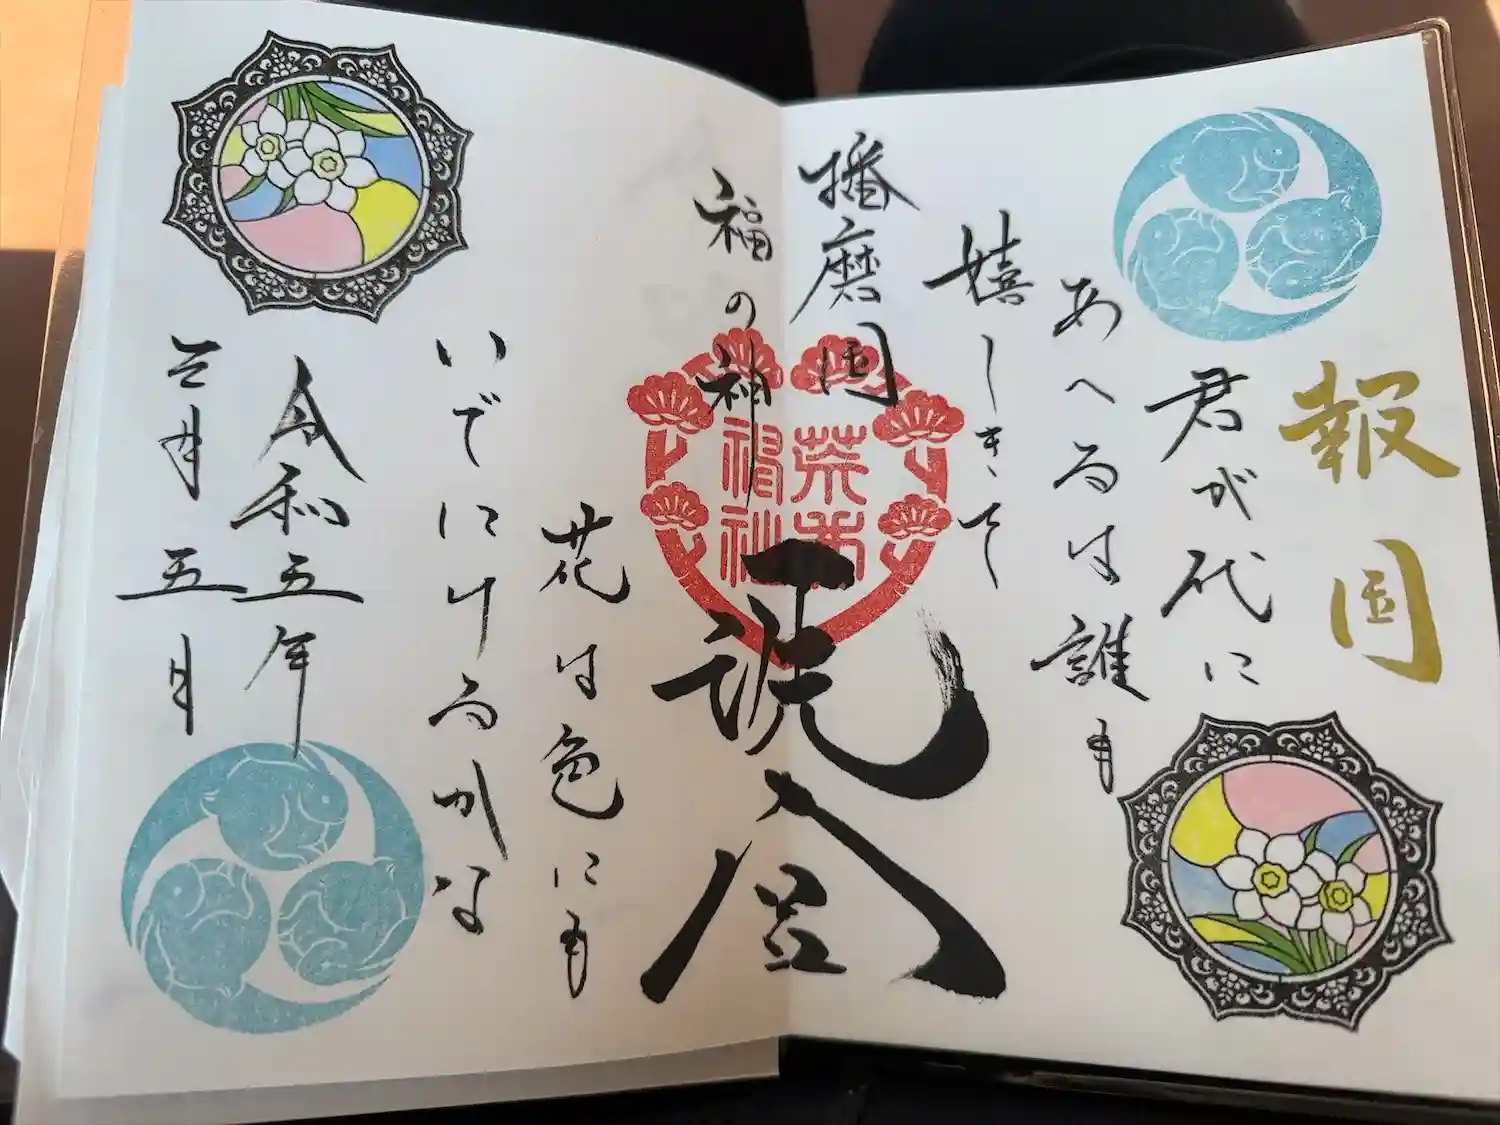 報国
君が代に
あへるは誰も
嬉しきを
播磨国
福の神
荒井
神社
花は色にも
いでにけるかな
令和五年
三月五日